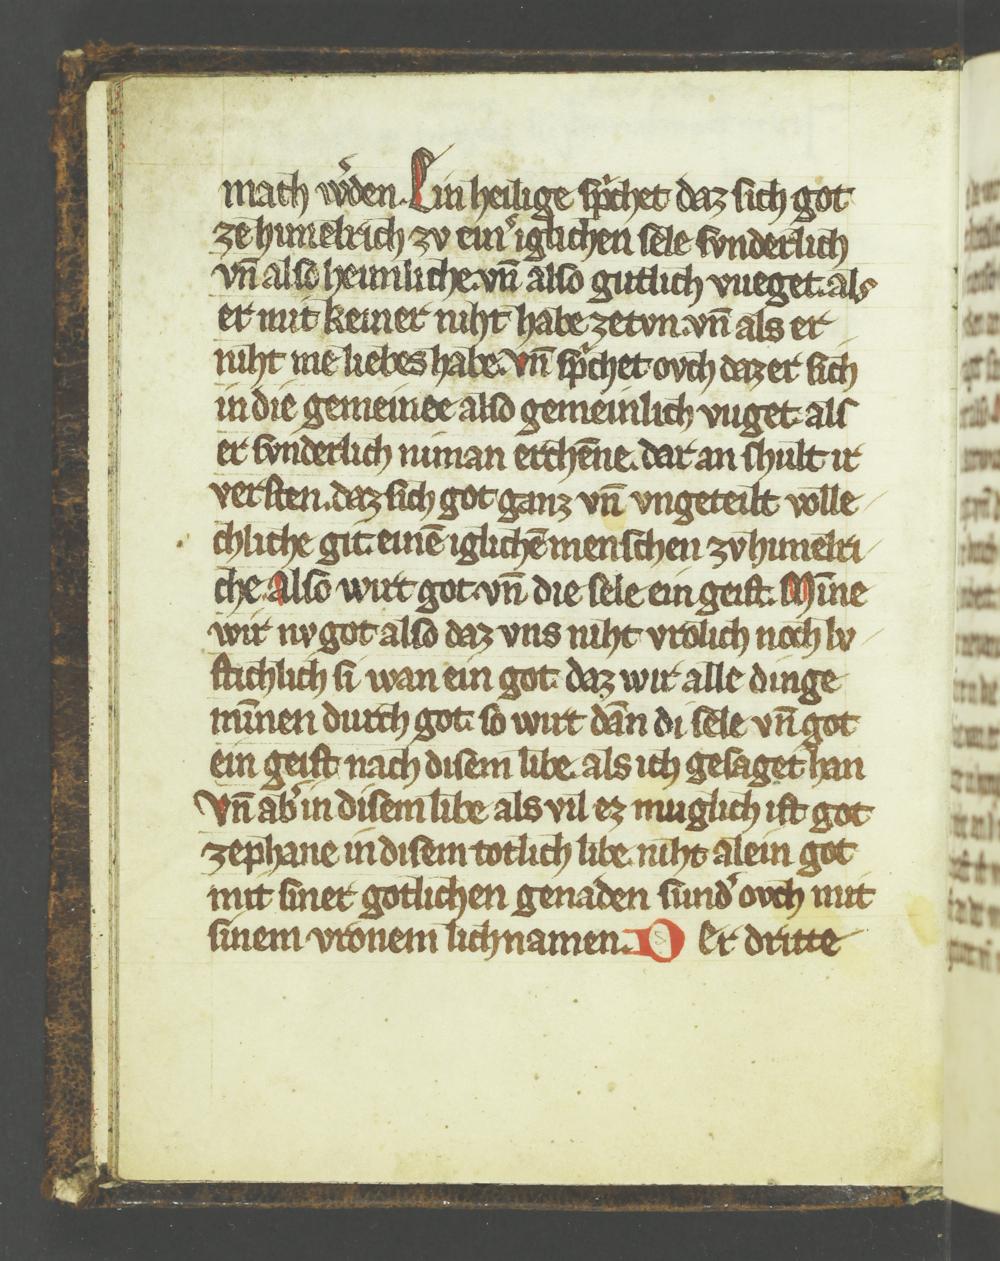 mach wˢden. Ein heilige sp̾chet daz sich got
ze himelrich zv einˢ iglichen sele svnderlich
vn̄ also heimliche. vn̄ also gutlich vueget. als
er mit keiner niht habe zetvn. vn̄ als er
niht me liebes habe. Vn̄ sp̾chet ovch daz er sich
in die gemeinee also gemeinlich vuget. als
er svnderlich niman erchēne. dar an shult ir
versten. daz sich got ganz vn̄ vngeteilt volle
chliche git. einē iglichē menschen zv himelri
che. Also wirt got vn̄ die sele ein geist. Mīne
wir nv got also daz vns niht vrolich noch lv
stichlich si wan ein got. daz wir alle dinge
mīnen durch got. so wirt dān di sele vn̄ got
ein geist nach disem libe. als ich gesaget han
Vn̄ abˢ in disem libe als vil ez muglich ist got
zephane in disem totlich libe. niht alein got
mit siner gotlichen genaden sundˢ ovch mit
sinem vronem lichnamen. D er dritte